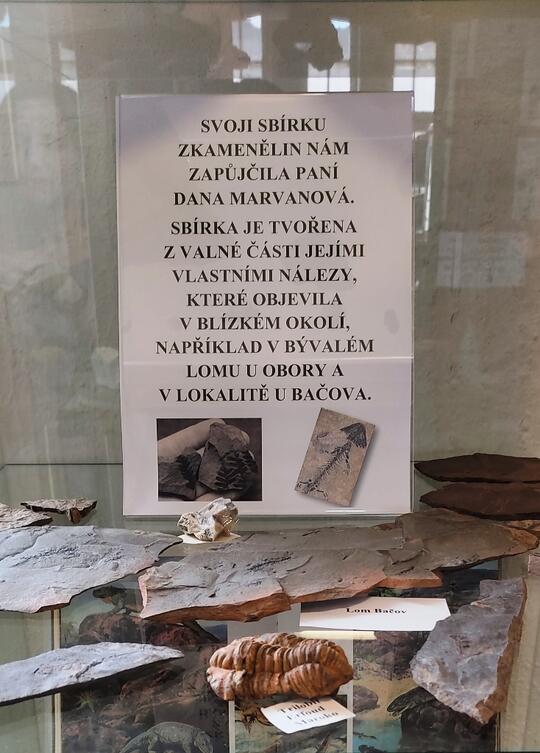 SVOJI SBÍRKU
ZKAMENĚLIN NÁM
ZAPŮJČILA PANÍ
DANA MARVANOVÁ.
SBÍRKA JE TVOŘENA
Z VALNÉ ČÁSTI JEJÍMI
VLASTNÍMI NÁLEZY,
KTERÉ OBJEVILA
V BLÍZKÉM OKOLÍ,
NAPŘÍKLAD V BÝVALÉM
LOMU U OBORY A
V LOKALITĚ U BAČOVA.
Lom Bačov
Trilobit
Erfoud
Maroko